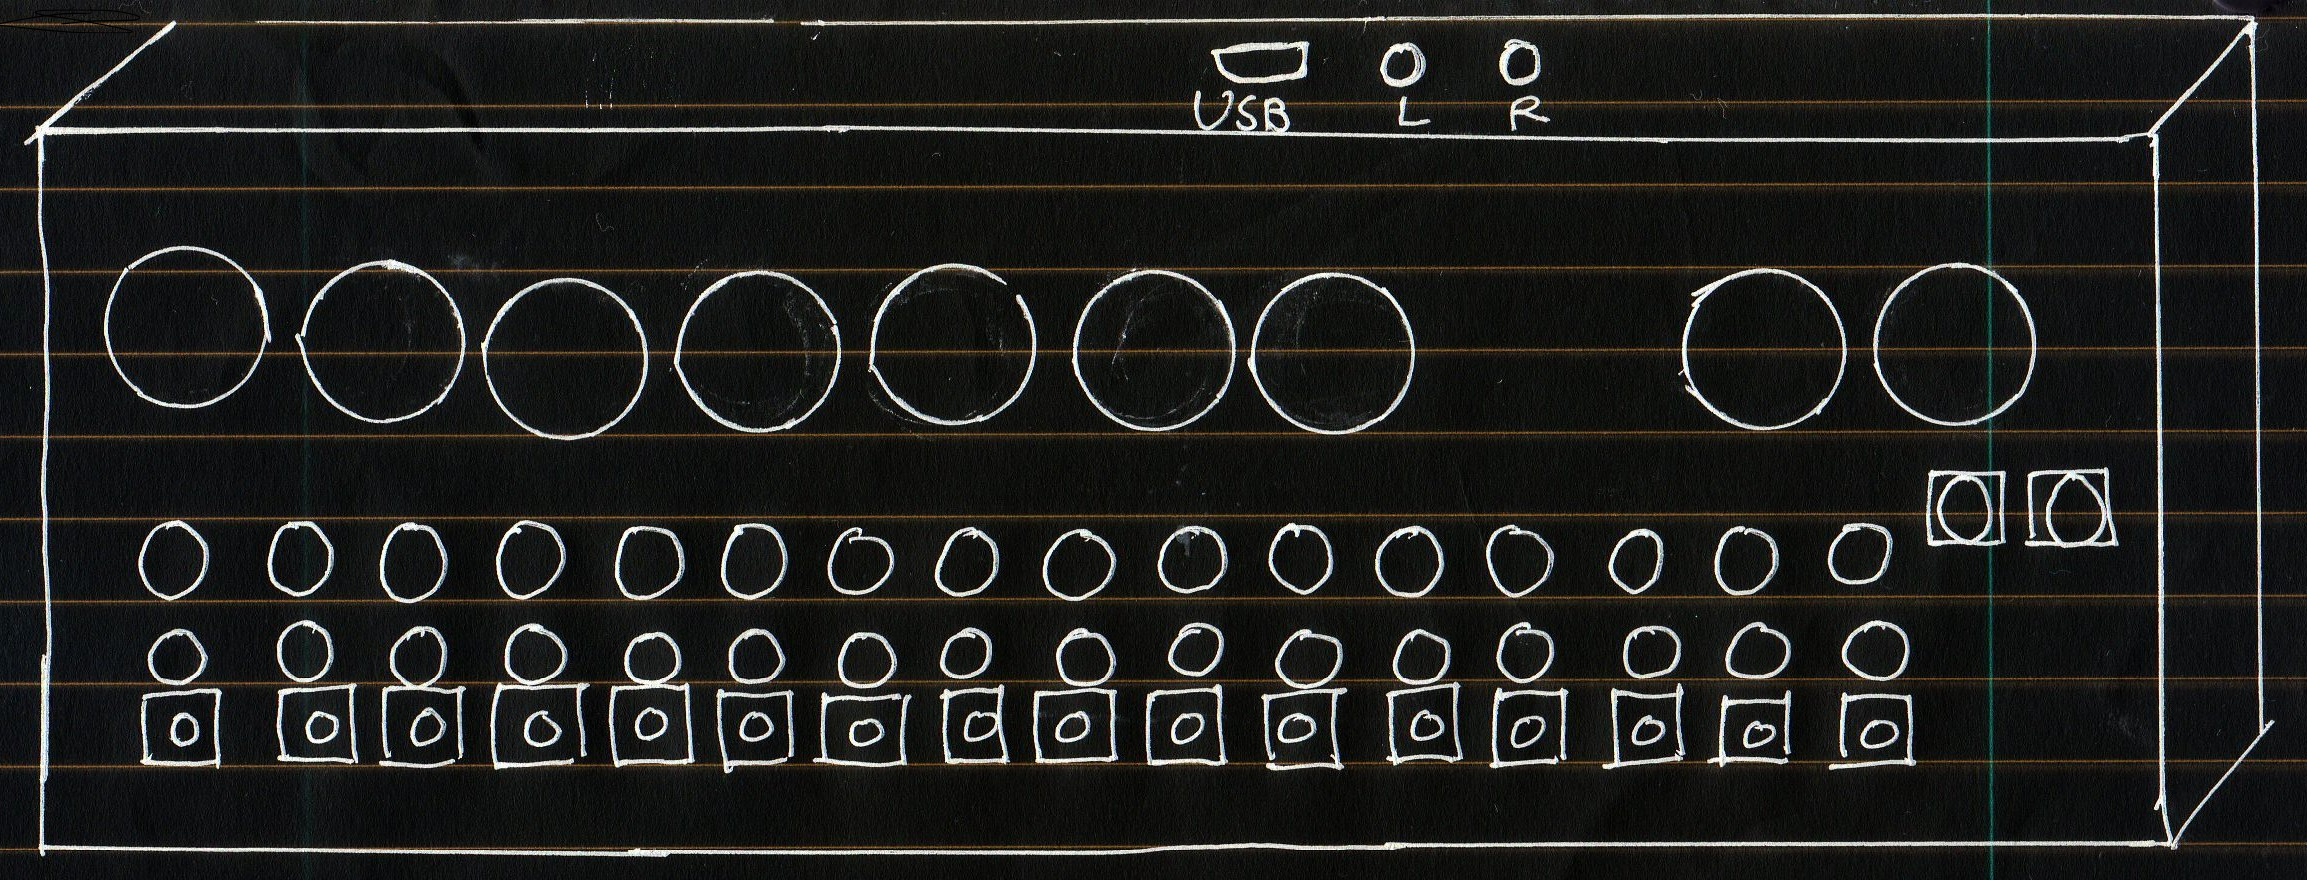 USB L R